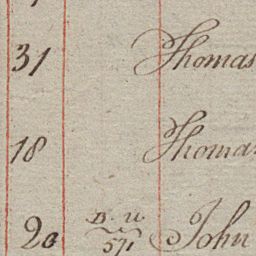 31 Thomas
18 Thomas
D. U
20 571 John